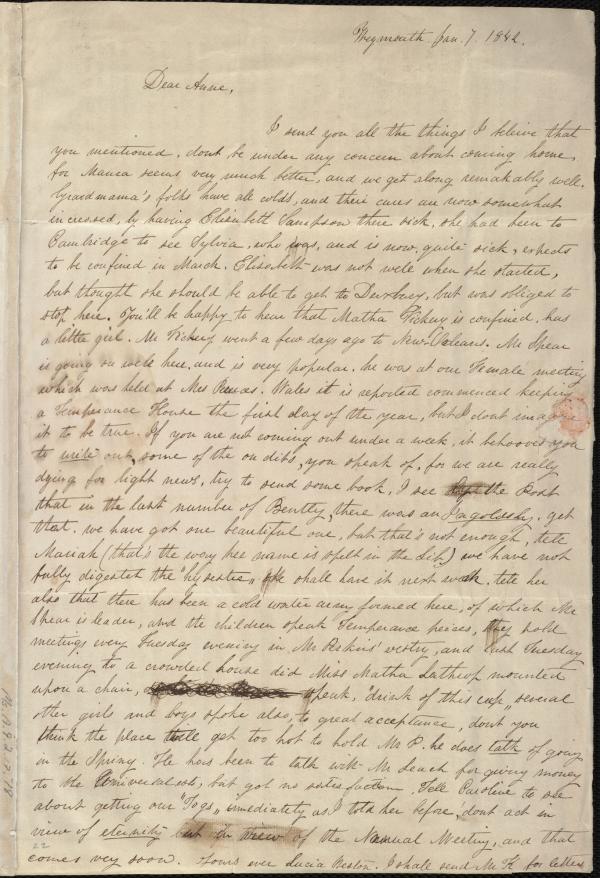 Weymouth. Jan. 7. 1842.
Dear Anne,
I send you all the things I believe that
you mentioned. dont be under any concern about coming home,
for Maria seems very much better, and we get along remarkably well.
Grandmama's folks have all colds, and their cares are now somewhat
increased, by having Elizabeth Sampson there sick, she had been to
Cambridge to see Sylvia, who was, and is now, quite sick, expects
to be confined in March. Elizabeth was not well when she started,
but thought she should be able to get to Duxbury, but was obliged to
stop here. You'll be happy to hear that Matha Tickery is confined. has
a little girl. Mr Tickery went a few days ago to New Orleans. Mr Spear
is going on well here. and is very popular. he was at our Female meeting
which was held at Mrs Wales it is reported commenced keeping
a Temperance House the first day of the year, but I dont imagine
it to be true. If you are not coming out under a week, it behooves you
to write out, some of the on dits, you speak of, for we are really
dying for light news, try to send some book. I see the Post
that in the last number of Bentley, there was an Ingoldsby. get
that. we have got one beautiful one, but that's not enough, tell
Mariah (that's the way her name is spelt in the Lib.) we have not
fully digested the we shall have it next week. tell her
also that there has been a cold water army formed here, of which Mr
Spear is leader, and the children speak Temperance peices, they hold
meetings every Tuesday evening in Mr Perkins' vestry, and last Tuesday
evening to a crowded house did Miss Matha Lathrop mounted
upon a chair, speak, "drink of this cup" several
other girls and boys spoke also, to great acceptance, dont you
think the place will get too hot to hold Mr P. he does talk of going
in the Spring. He has been to talk with Mr Leach for giving money
to the Universalists, but got no satisfaction. Tell Caroline to see
about getting our "Togs" immediately as I told her before, dont act in
view of eternity but in view of the Annual Meeting, and that
comes very soon. Yours ever Lucia Weston. I shall send Mr K for letters
22